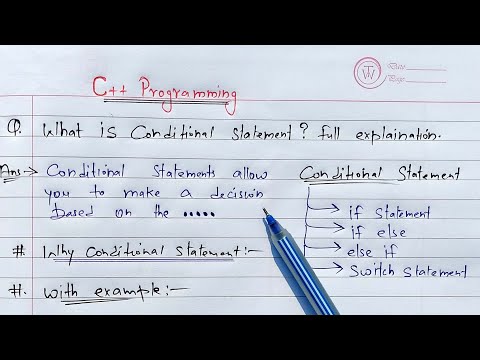 Date
Page
C++ Programming
Q. What is Conditional Statement? full explaination.
Ans → Conditional Statements allow
you to make a decision
based on the .....
Conditional Statement
→ if Statement
→ if else
→ else if
→ Switch Statement
#. Why Conditional Statement:-
#. With example:-